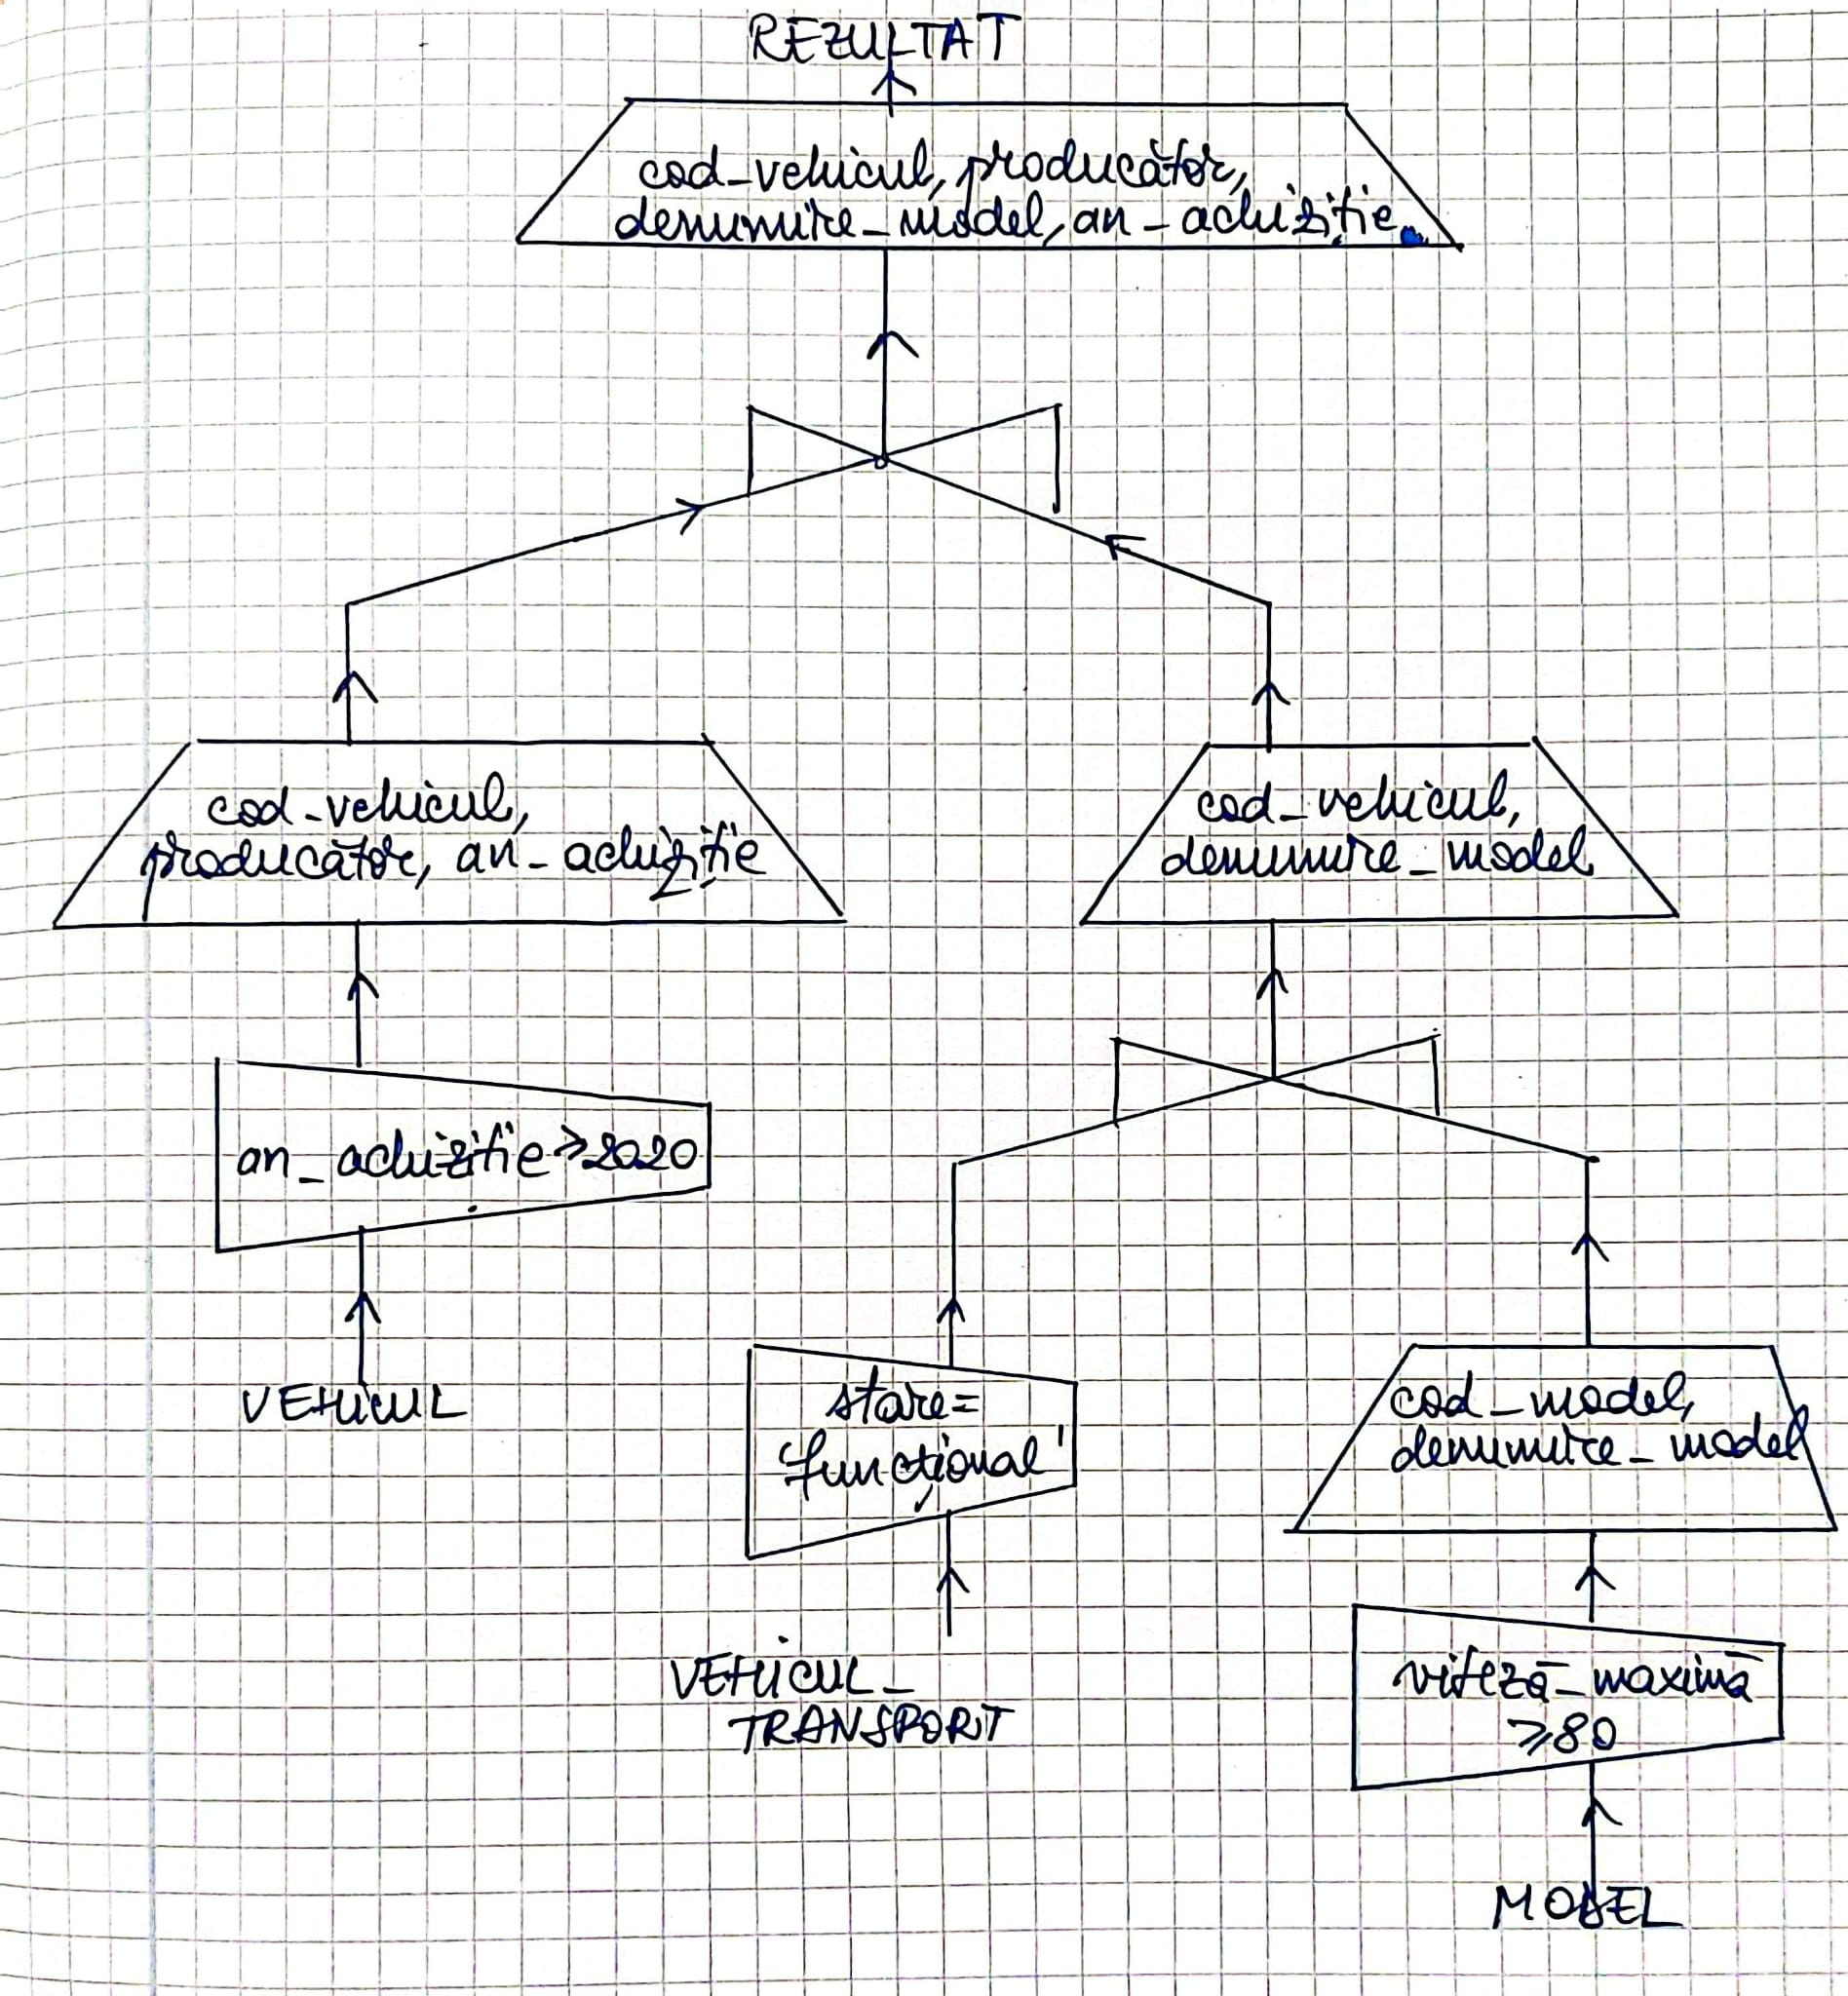 REZULTAT
cod_vehicul, producător,
denumire_model, an_achiziție
cod_vehicul,
producător, an_achiziție
cod_vehicul,
denumire_model
an_achiziție≥2020
VEHICUL
stare=
'funcțional'
cod_model,
denumire_model
VEHICUL_
TRANSPORT
viteză_maximă
≥80
MODEL